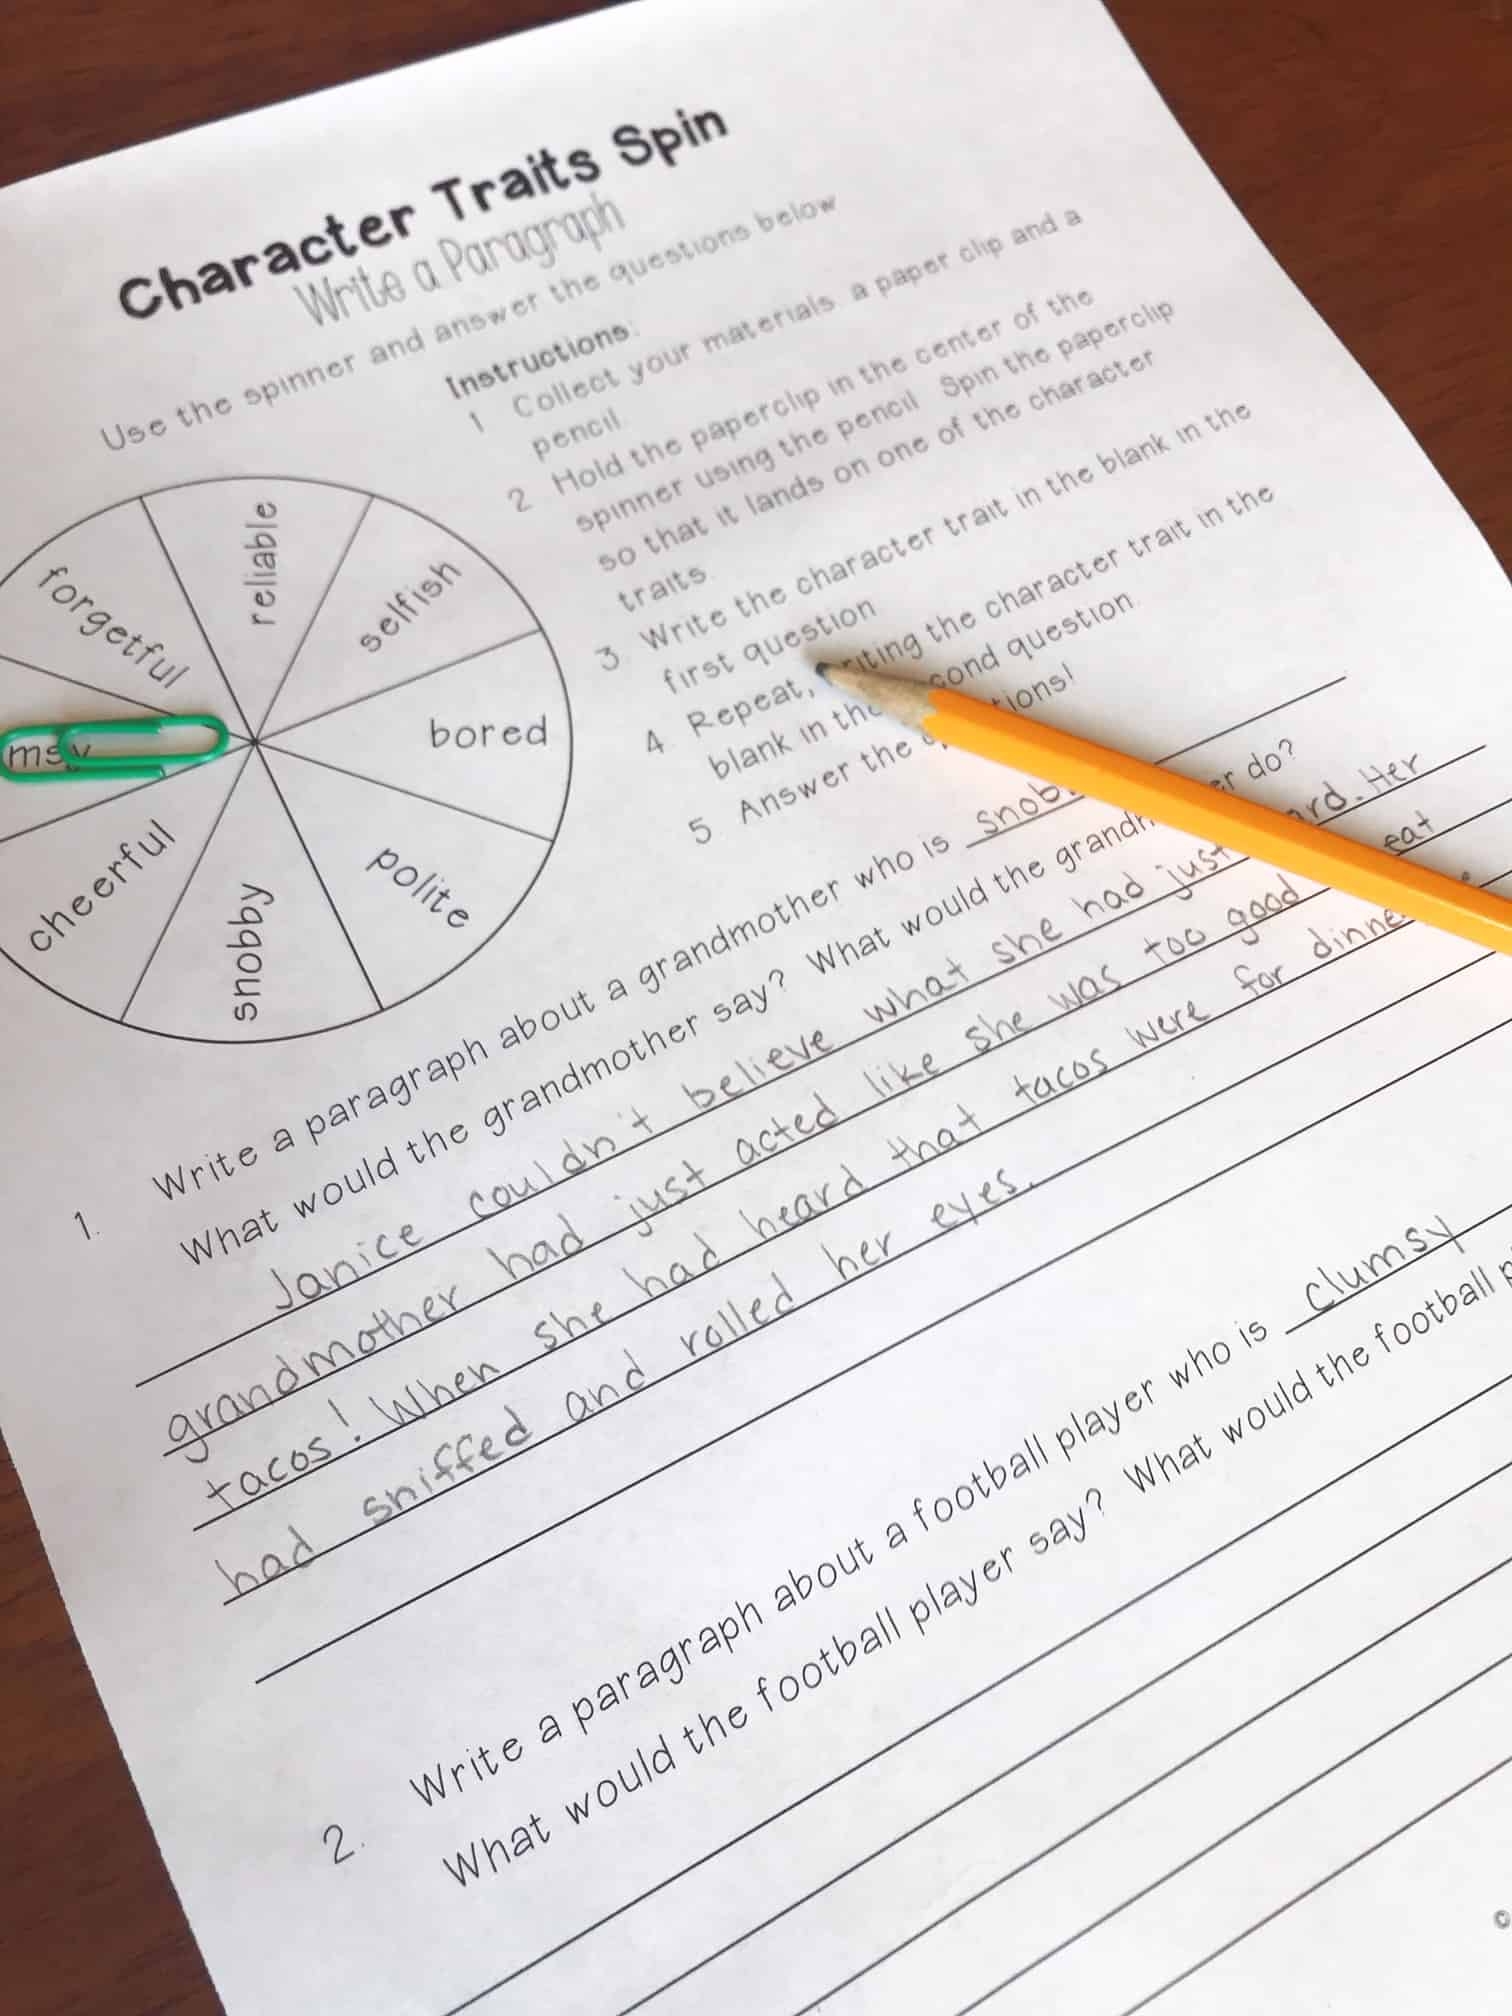 Character Traits Spin
Write a Paragraph
Use the spinner and answer the questions below
Instructions:
1 Collect your materials: a paper clip and a
pencil
2 Hold the paperclip in the center of the
spinner using the pencil Spin the paperclip
so that it lands on one of the character
traits.
3 Write the character trait in the blank in the
first question
4 Repeat, the character trait in the
blank in the question.
5 Answer the
reliable
selfish
bored
polite
snobby
cheerful
forgetful
1. Write a paragraph about a grandmother who is
What would the grandmother say? What would the do?
Janice couldn't believe what she had just Her
grandmother had just acted like she was too good eat
tacos! When she had heard that tacos were for
had sniffed and rolled her eyes.
2. Write a paragraph about a football player who is clumsy
What would the football player say? What would the football
©